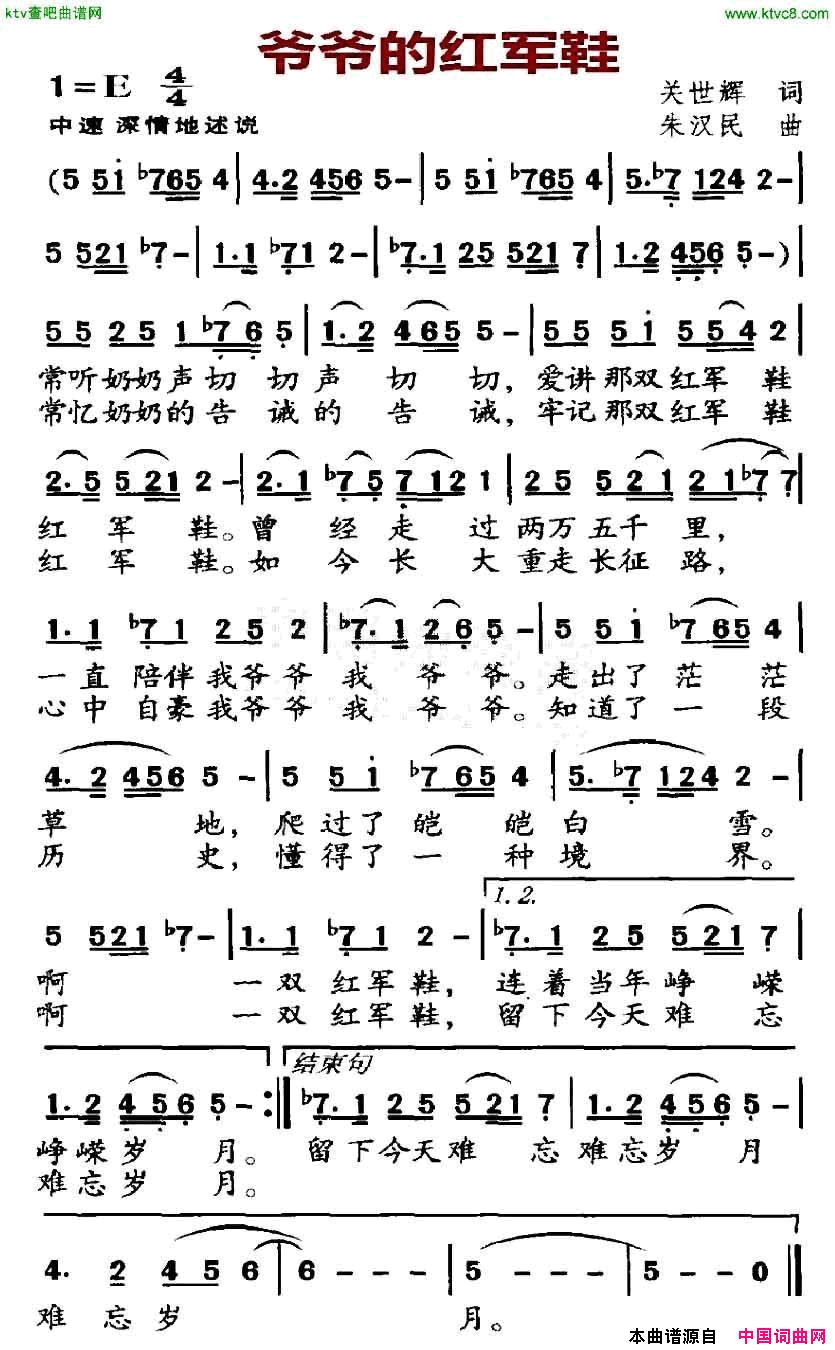 ktv查吧曲谱网
www.ktvc8.com
爷爷的红军鞋
1=E 4/4
关世辉 词
中速 深情地述说
朱汉民 曲
(5 51 ♭765 4 | 4.2 456 5- | 5 51 ♭765 4 | 5.♭7 124 2- |
5 521 ♭7- | 1.1 ♭71 2- | ♭7.1 25 521 7 | 1.2 456 5-) |
55 25 1 ♭76 5 | 1.2 465 5- | 55 51 554 2 |
常听奶奶声切 切声 切 切，爱讲那双红军 鞋
常忆奶奶的告 诫的 告 诫，牢记那双红军 鞋
2.5 521 2- | 2.1 ♭75 712 1 | 25 521 21♭7 7 |
红 军 鞋。曾 经走 过 两万 五千 里，
红 军 鞋。如 今长 大 重走长征 路，
1.1 ♭71 25 2 | ♭7.1 26 5- | 5 51 ♭765 4 |
一直 陪伴我爷爷 我 爷 爷。走出了 茫 茫
心中 自豪我爷爷 我 爷 爷。知道了 一 段
4.2 456 5- | 5 51 ♭765 4 | 5.♭7 124 2- |
草 地，爬过了 皑 皑白 雪。
历 史，懂得了 一 种境 界。
1.2.
5 521 ♭7- | 1.1 ♭71 2- | ♭7.1 25 521 7 |
啊 一双 红军 鞋，连着 当年 峥 嵘
啊 一双 红军 鞋，留下 今天 难 忘
结束句
1.2 456 5- :‖ ♭7.1 25 521 7 | 1.2 456 5- |
峥嵘岁 月。 留下今天难 忘 难忘岁 月
难忘岁 月。
4. 2 456 | 6--- | 5--- | 5--0 ‖
难 忘岁 月。
本曲谱源自 中国词曲网